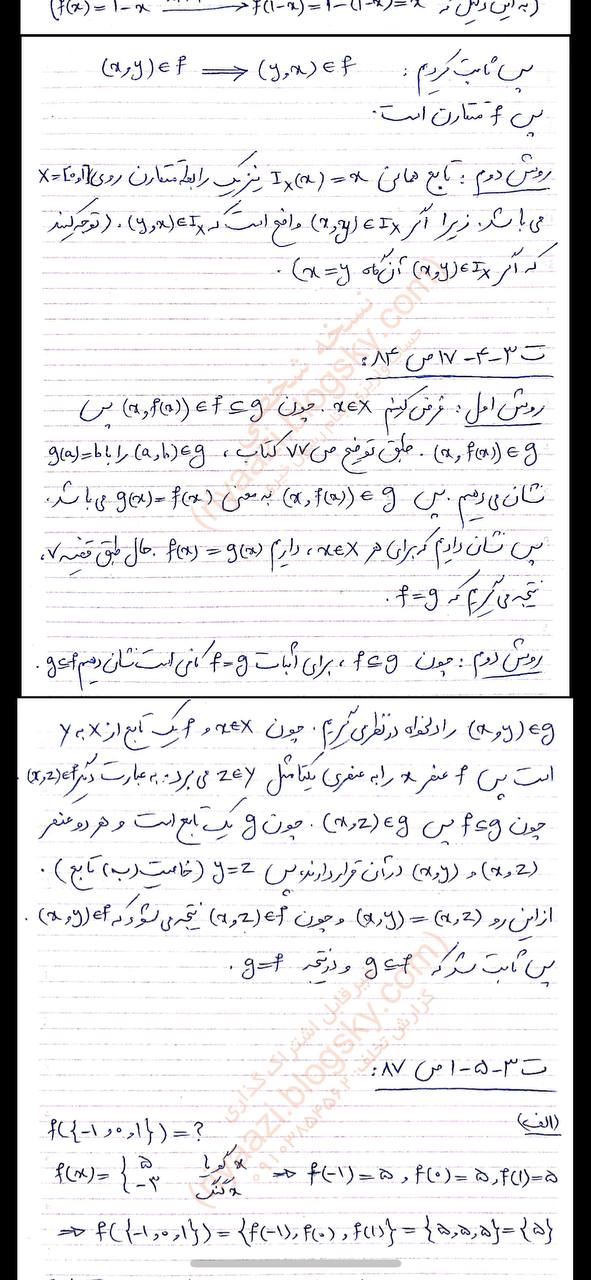 (به این دلیل که f(x)=1-x ⟶ f(1-x)=1-(1-x)=x)
پس ثابت کردیم: (x,y)∈f ⟹ (y,x)∈f
پس f متقارن است.
روش دوم: تابع همانی I_X(x)=x نیز یک رابطه متقارن روی X=[0,1]
می باشد. زیرا اگر (x,y)∈I_X واضح است که (y,x)∈I_X. (توجه کنید
که اگر (x,y)∈I_X آن گاه x=y).
ت ۳-۴-۱۷ ص ۸۴:
روش اول: فرض کنیم x∈X. چون (x,f(x))∈f⊆g پس
(x,f(x))∈g. طبق توضیح ص ۷۷ کتاب، (a,b)∈g را با g(a)=b
نشان می دهیم. پس (x,f(x))∈g به معنی g(x)=f(x) می باشد.
پس نشان دادیم که برای هر x∈X، داریم f(x)=g(x). حال طبق قضیه ۷،
نتیجه می گیریم که f=g.
روش دوم: چون f⊆g، برای اثبات f=g کافی است نشان دهیم g⊆f.
(x,y)∈g را دلخواه در نظر می گیریم. چون x∈X و f یک تابع از X به Y
است پس f عنصر x را به عنصری یکتا مثل z∈Y می برد. به عبارت دیگر (x,z)∈f.
چون f⊆g پس (x,z)∈g. چون g یک تابع است و هر دو عنصر
(x,z) و (x,y) در آن قرار دارند، پس y=z (خاصیت (ب) تابع).
از این رو (x,y)=(x,z) و چون (x,z)∈f نتیجه می شود که (x,y)∈f.
پس ثابت شد که g⊆f و در نتیجه g=f.
ت ۳-۵-۱ ص ۸۷:
الف)
f({-1,0,1})=?
f(x)={۵ x گویا / -۳ x گنگ ⟹ f(-1)=۵, f(0)=۵, f(1)=۵
⟹ f({-1,0,1})={f(-1),f(0),f(1)}={۵,۵,۵}={۵}
نسخه شخصی
(nyaazi.blogsky.com)
غیرقابل اشتراک گذاری
(nyaazi.blogsky.com)
گزارش تخلف: